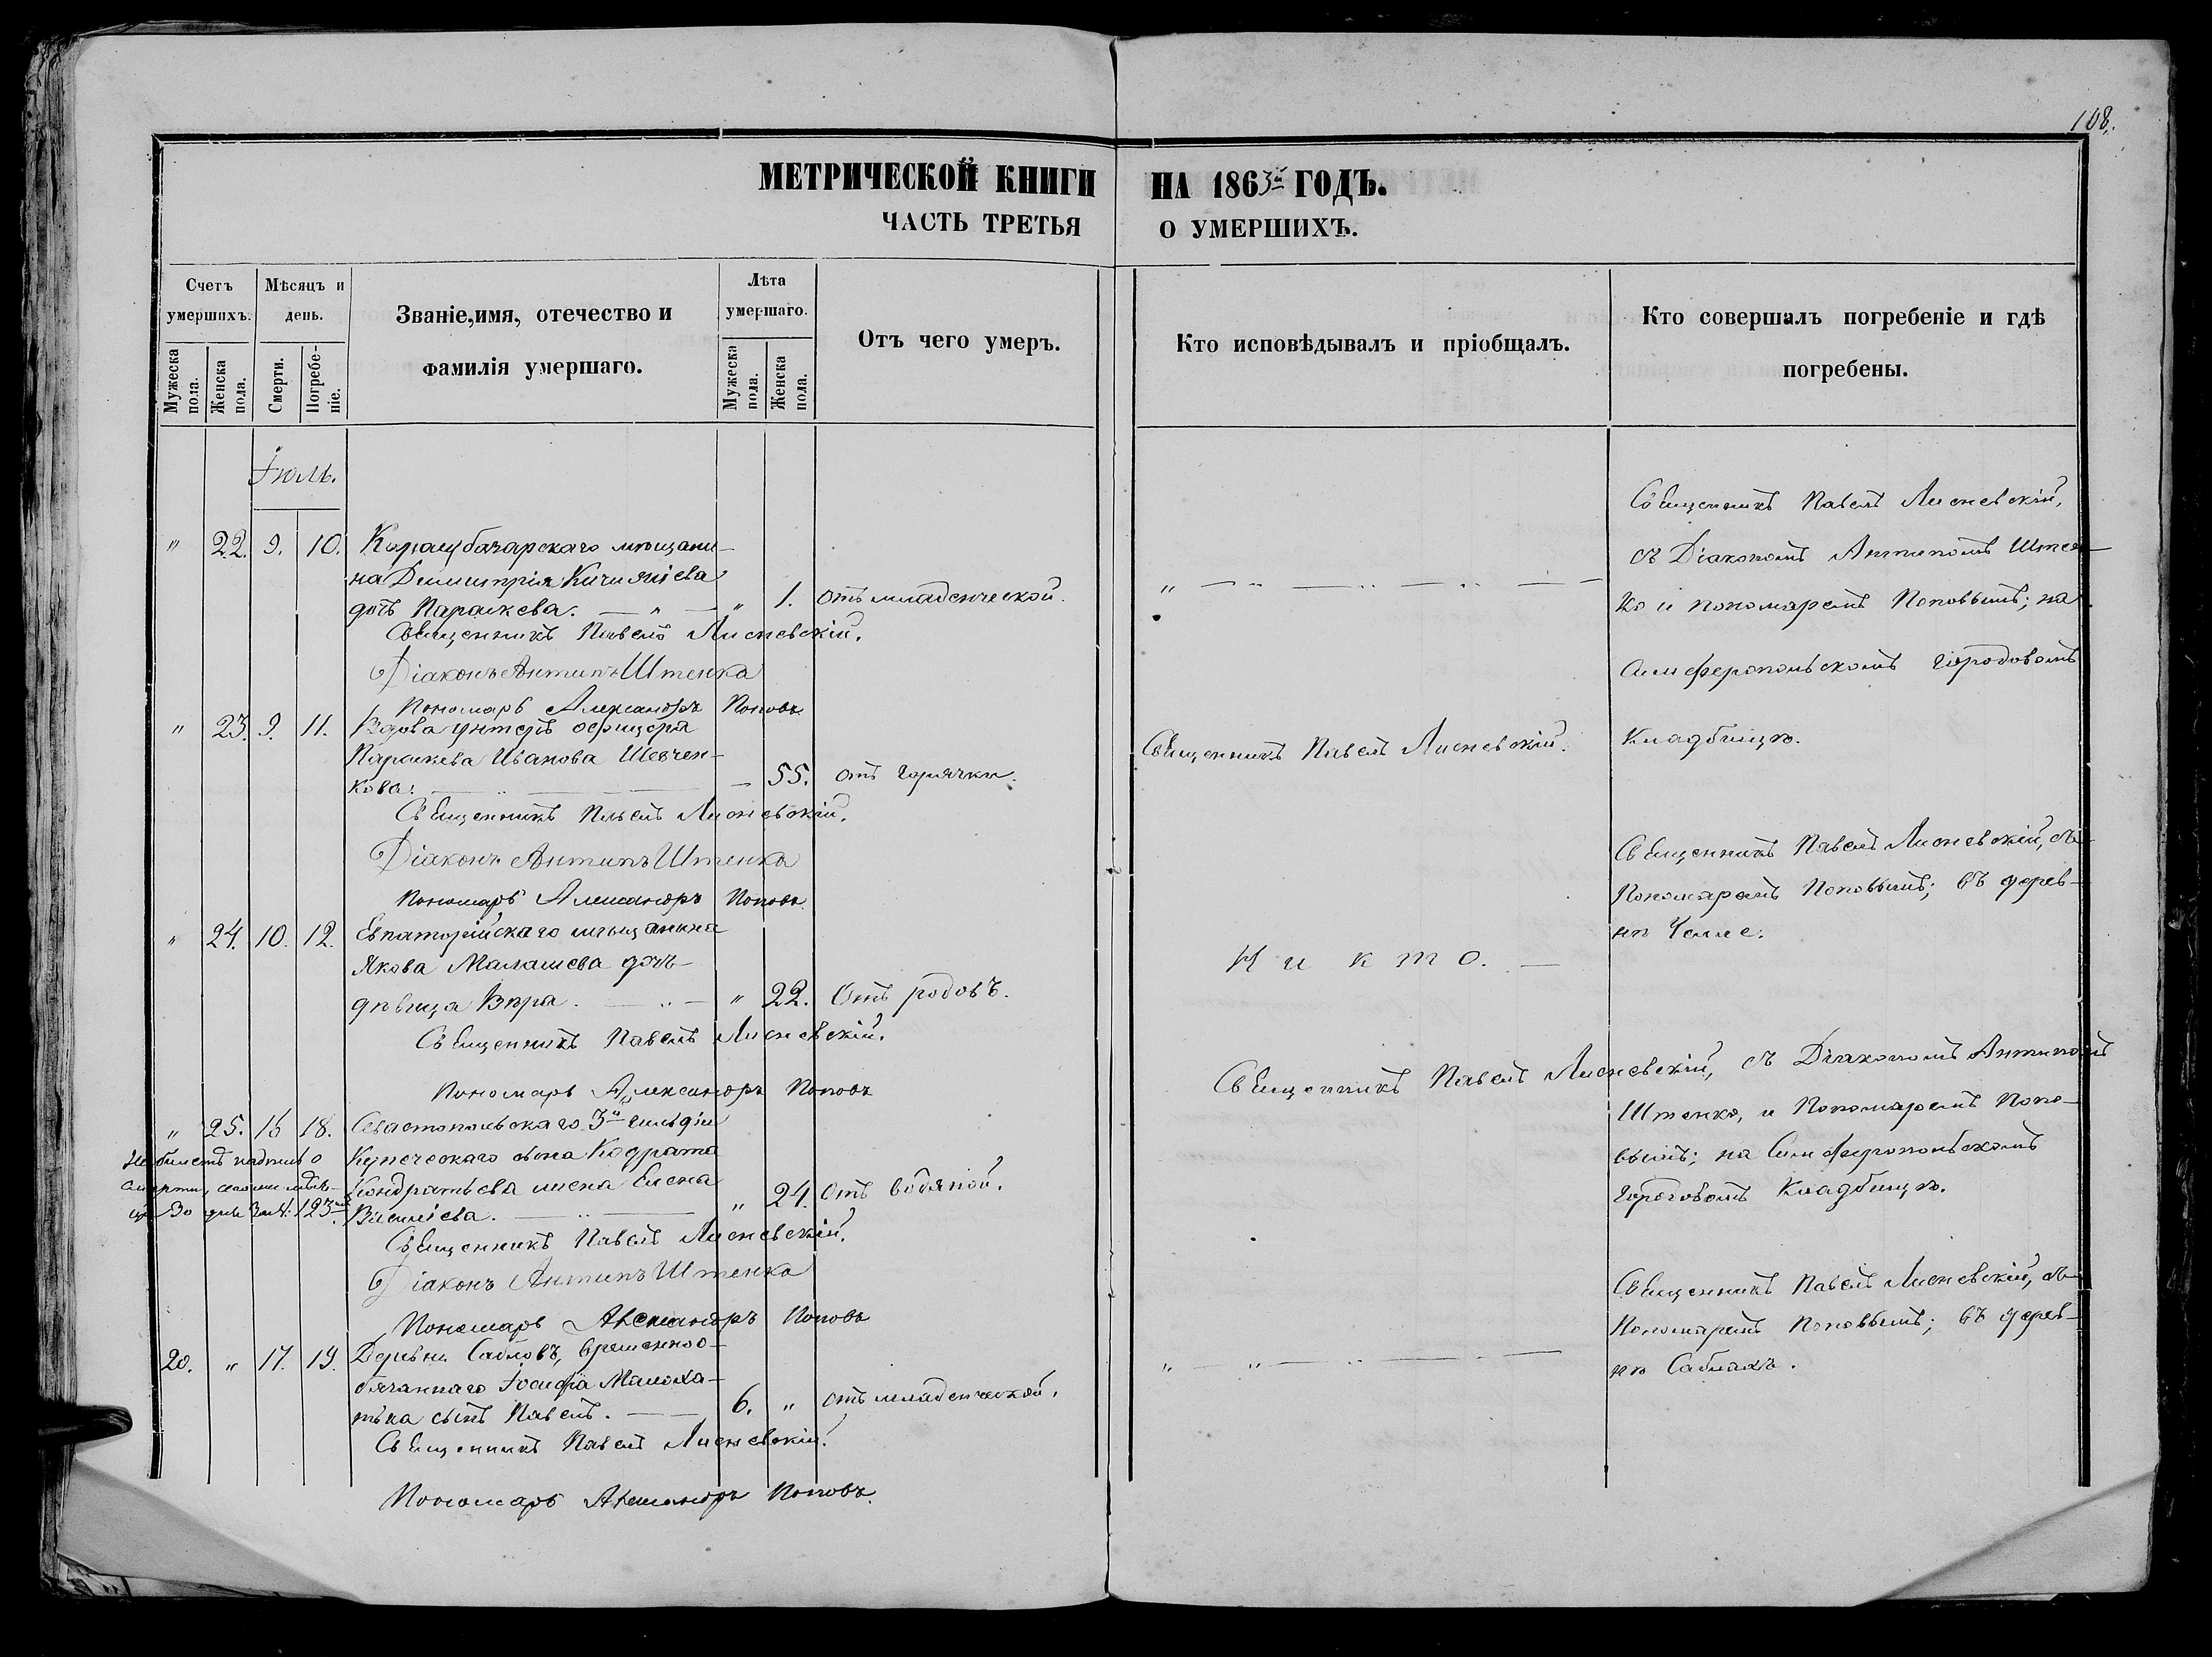 108.
МЕТРИЧЕСКОЙ КНИГИ НА 1863й ГОДЪ.
ЧАСТЬ ТРЕТЬЯ О УМЕРШИХЪ.
Счетъ умершихъ.
Мужеска пола.
Женска пола.
Мѣсяцъ и день.
Смерти.
Погребеніе.
Званіе, имя, отечество и фамилія умершаго.
Лѣта умершаго.
Мужеска пола.
Женска пола.
Отъ чего умеръ.
Кто исповѣдывалъ и пріобщалъ.
Кто совершалъ погребеніе и гдѣ погребены.
Іюль.
" 22. 9. 10. Карасубазарскаго мѣщани-
на Димитрія
дочь Параскева. — " — " 1. отъ младенческой.
Священникъ Павелъ Лисневскій.
Діаконъ Антипъ Штенко
Пономарь Александръ Поповъ
Священникъ Павелъ Лисневскій,
съ Діакономъ Антипомъ Штен-
ко и пономаремъ Поповымъ; на
Симферопольскомъ городовомъ
кладбищѣ.
" 23. 9. 11. Вдова унтеръ офицера
Параскева Иванова Шевчен-
кова. — 55. отъ горячки.
Священникъ Павелъ Лисневскій.
Священникъ Павелъ Лисневскій.
Діаконъ Антипъ Штенко
Пономарь Александръ Поповъ
" 24. 10. 12. Евпаторійскаго мѣщанина
Якова Малашева дочь
дѣвица Вѣра. " 22. Отъ родовъ.
Никто. —
Священникъ Павелъ Лисневскій.
Пономарь Александръ Поповъ
Священникъ Павелъ Лисневскій, съ
Пономаремъ Поповымъ; въ дерев-
нѣ
" 25. 16 18. Севастопольскаго 3й гильдіи
Купеческаго сына Кодрата
Кондратьева жена Елена
Василіева. " 24. Отъ водяной.
На билетѣ надпись о
смерти, сего мѣся-
ца 30 дня за №. 123м.
Священникъ Павелъ Лисневскій.
Діаконъ Антипъ Штенко
Пономарь Александръ Поповъ
Священникъ Павелъ Лисневскій, съ Діакономъ Антипомъ
Штенко, и Пономаремъ Попо-
вымъ; на Симферопольскомъ
городовомъ Кладбищѣ.
20. " 17. 19. Деревни Сабловъ, временноо-
бязаннаго Іосифа
сынъ Павелъ. — 6. " отъ младенческой.
Священникъ Павелъ Лисневскій.
Пономарь Александръ Поповъ
Священникъ Павелъ Лисневскій, съ
Пономаремъ Поповымъ; въ дерев-
нѣ Саблахъ.